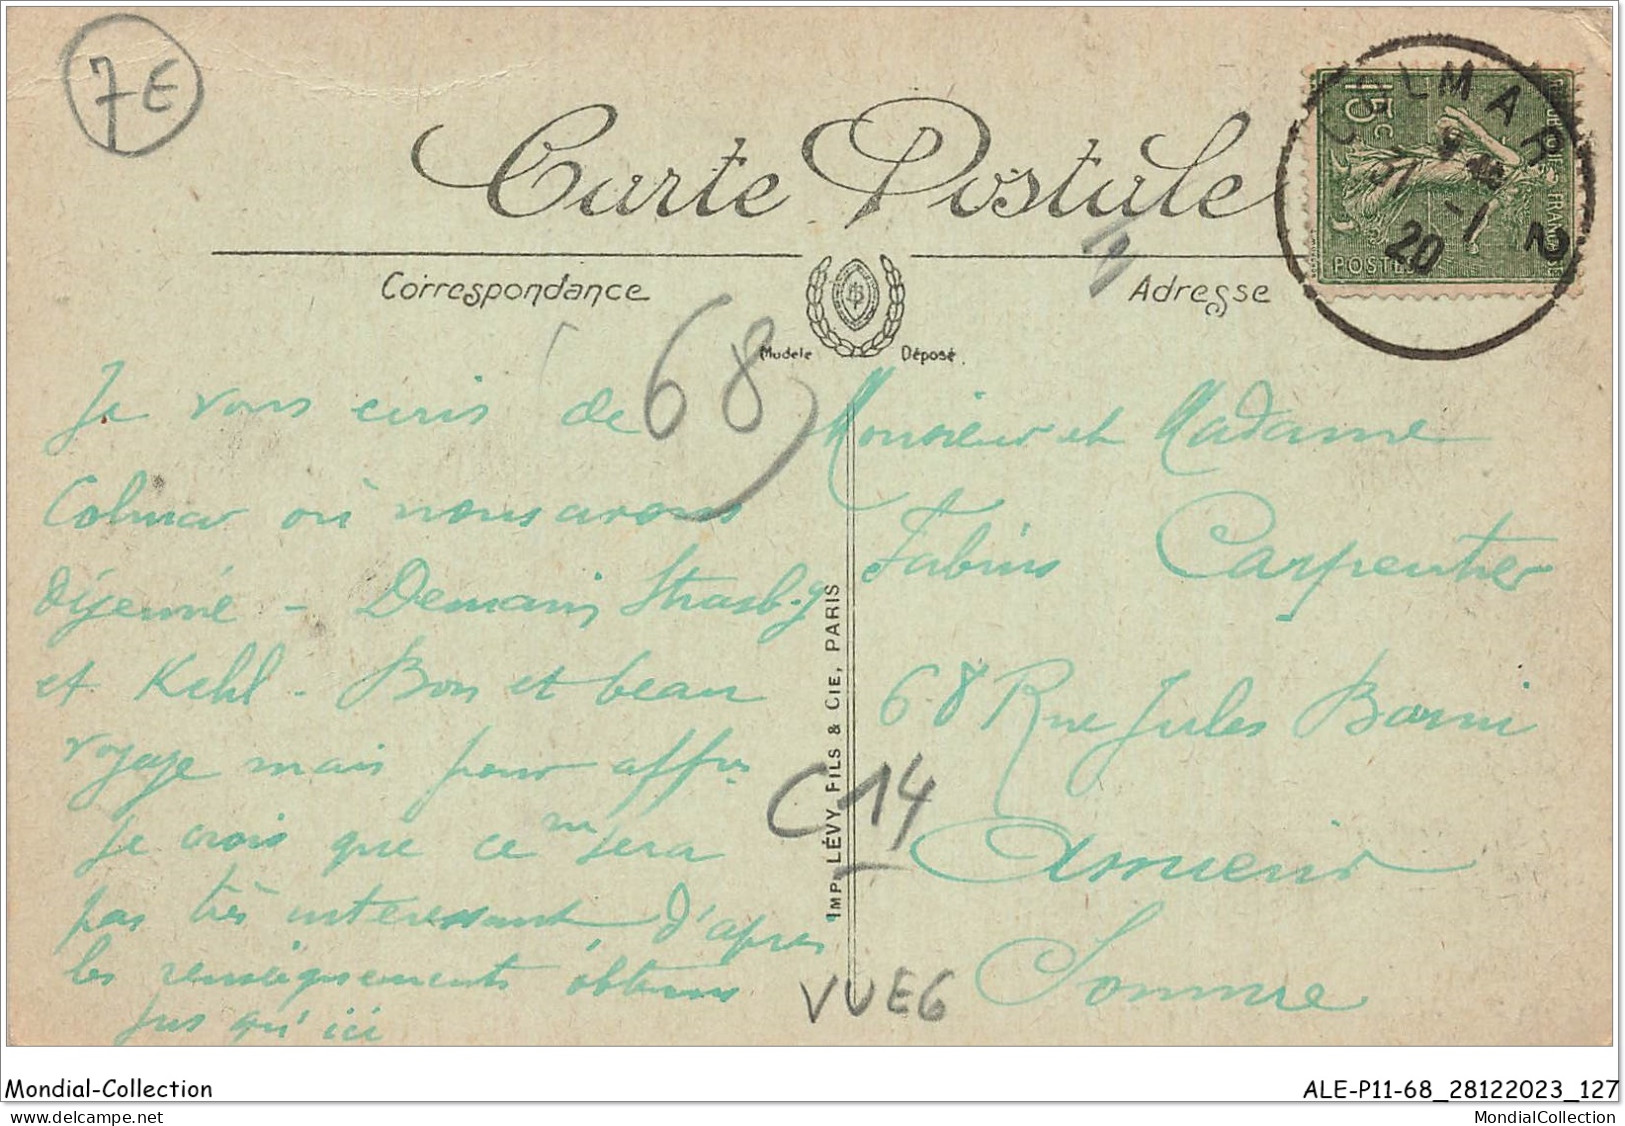 7E
Carte Postale
COLMAR
2
31 -1
20
15c
POSTES
Correspondance
Adresse
Modèle Déposé.
68
Je vous écris de
Colmar où nous avons
déjeuné - Demain Strasb-g
et Kehl - Bon et beau
voyage mais pour affres
Je crois que ce ne sera
pas très intéressant d'après
les renseignements obtenus
jus qu'ici
Monsieur et Madame
Fabius Carpentier
68 Rue Jules Barni
Amiens
Somme
IMP. LÉVY FILS & CIE, PARIS
C14
VUE6
Mondial-Collection
ALE-P11-68_28122023_127
MondialCollection.net
MondialCollection